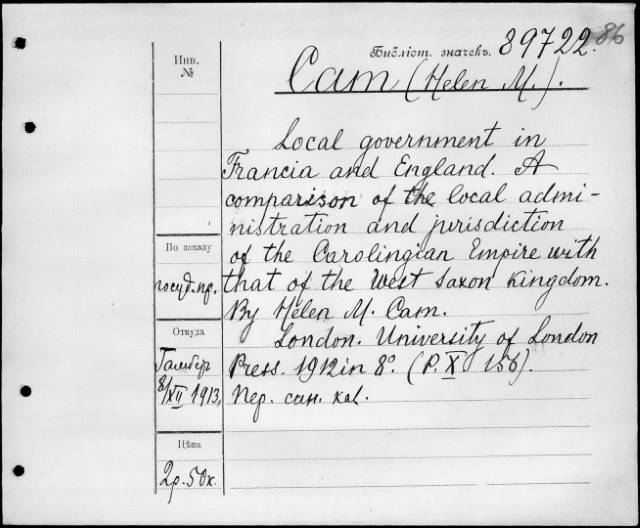 Библіот. значекъ. 89722. 86
Инв.
№
Cam (Helen M.).
Local government in
Francia and England. A
comparison of the local admi-
nistration and jurisdiction
По заказу
of the Carolingian Empire with
госуд. пр.
that of the West Saxon Kingdom.
By Helen M. Cam.
Откуда
London. University of London
Press. 1912 in 8º. (P. X 156).
8/XII 1913.
Пер. сан. kal.
Цѣна
2р. 50к.